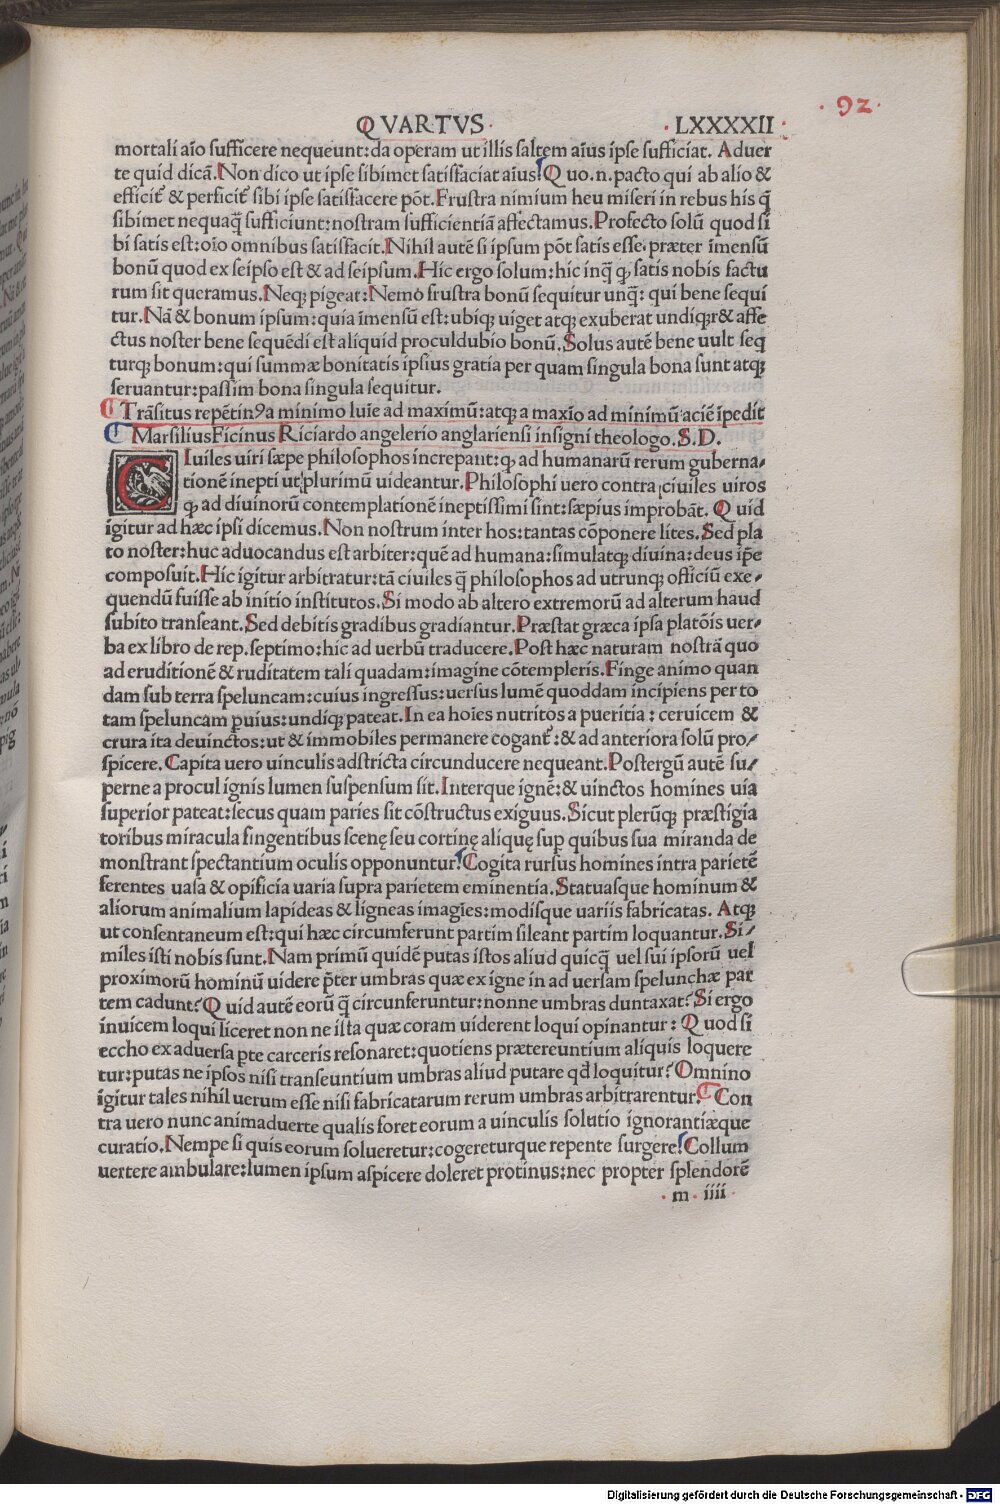 · 92 ·
QVARTVS · · LXXXXII ·
mortali aīo sufficere nequeunt: da operam ut illis saltem aīus ipse sufficiat. Aduer
te quid dicā. Non dico ut ipse sibimet satisfaciat aius? Quo .n. pacto qui ab alio &
efficit̄ & perficit̄ sibi ipse satisfacere pōt. Frustra nimium heu miseri in rebus his q̄
sibimet nequaq̄ sufficiunt: nostram sufficientiā affectamus. Profecto solū quod si
bi satis est: oīo omnibus satisfacit. Nihil autē si ipsum pōt satis esse, præter īmensū
bonū quod ex seipso est & ad seipsum. Hic ergo solum: hic inq̄ ꝙ satis nobis factu
rum sit queramus. Neqꝫ pigeat: Nemo frustra bonū sequitur unq̄: qui bene sequi
tur. Nā & bonum ipsum: quia īmensū est: ubiqꝫ uiget atqꝫ exuberat undiqꝫ & affe
ctus noster bene sequēdi est aliquid proculdubio bonū. Solus autē bene uult seq
turqꝫ bonum: qui summæ bonitatis ipsius gratia per quam singula bona sunt atqꝫ
seruantur: passim bona singula sequitur.
¶ Trāsitus repētinꝰ a minimo luīe ad maximū: atqꝫ a maxīo ad minimū aciē īpedit
¶ Marsilius Ficinus Riciardo angelerio anglariensi insigni theologo. S. D.
CIuiles uiri sæpe philosophos increpant: ꝙ ad humanarū rerum guberna-
tionē inepti ut plurimū uideantur. Philosophi uero contra ciuiles uiros
ꝙ ad diuinorū contemplationē ineptissimi sint: sæpius improbāt. Quid
igitur ad hæc ipsi dicemus. Non nostrum inter hos: tantas cōponere lites. Sed pla
to noster: huc aduocandus est arbiter: quē ad humana: simulatqꝫ diuina: deus ip̄e
composuit. Hic igitur arbitratur: tā ciuiles q̄ philosophos ad utrunqꝫ officiū exe-
quendū fuisse ab initio institutos. Si modo ab altero extremorū ad alterum haud
subito transeant. Sed debitis gradibus gradiantur. Præstat græca ipsa platōis uer-
ba ex libro de rep. septimo: hic ad uerbū traducere. Post hæc naturam nostrā quo
ad eruditionē & ruditatem tali quadam: imagine cōtempleris. Finge animo quan
dam sub terra speluncam: cuius ingressus: uersus lumē quoddam incipiens per to
tam speluncam ꝑuius: undiqꝫ pateat. In ea hoies nutritos a pueritia: ceruicem &
crura ita deuinctos: ut & immobiles permanere cogant̄: & ad anteriora solū pro-
spicere. Capita uero uinculis adstricta circunducere nequeant. Postergū autē su-
perne a procul ignis lumen suspensum sit. Interque ignē: & uinctos homines uia
superior pateat: secus quam paries sit cōstructus exiguus. Sicut plerūqꝫ præstigia
toribus miracula fingentibus scenę seu cortinę aliquę suꝑ quibus sua miranda de
monstrant spectantium oculis opponuntur? Cogita rursus homines intra parietē
ferentes uasa & opificia uaria supra parietem eminentia. Statuasque hominum &
aliorum animalium lapideas & ligneas imagīes: modisque uariis fabricatas. Atqꝫ
ut consentaneum est: qui hæc circumferunt partim sileant partim loquantur. Si-
miles isti nobis sunt. Nam primū quidē putas istos aliud quicq̄ uel sui ipsorū uel
proximorū hominū uidere p̄ter umbras quæ ex igne in ad uersam spelunchæ par
tem cadunt? Quid autē eorū q̄ circunferuntur: nonne umbras duntaxat? Si ergo
inuicem loqui liceret non ne ista quæ coram uiderent loqui opinantur: Quod si
eccho ex aduersa ꝑte carceris resonaret: quotiens prætereuntium aliquis loquere
tur: putas ne ipsos nisi transeuntium umbras aliud putare qd̄ loquitur? Omnino
igitur tales nihil uerum esse nisi fabricatarum rerum umbras arbitrarentur. ¶ Con
tra uero nunc animaduerte qualis foret eorum a uinculis solutio ignorantiæque
curatio. Nempe si quis eorum solueretur: cogereturque repente surgere? Collum
uertere ambulare: lumen ipsum aspicere doleret protinus: nec propter splendorē
· m · iiii ·
Digitalisierung gefördert durch die Deutsche Forschungsgemeinschaft - DFG